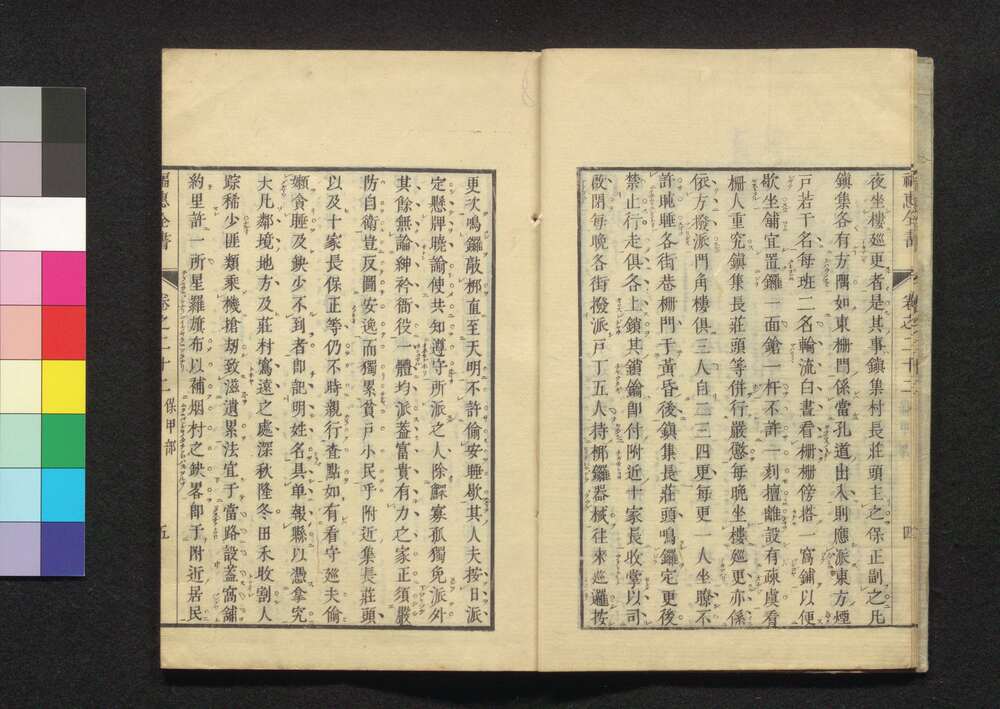 夜坐樓廵更者是其事鎮集村長莊頭主之保正副之凡
鎮集各有方隅如東柵門係當孔道出入則應派東方煙
戸若干名每班二名輪流白晝看柵柵傍搭一窩鋪以便
歇坐舖宜置鑼一面鎗一杆不許一刻擅離設有疎虞看
柵人重究鎮集長莊頭等併行嚴懲每晩坐樓廵更亦係
依方撥派門角樓俱三人自二三四更每更一人坐瞭不
許吨睡各街巷柵門于黄昏後鎮集長莊頭鳴鑼定更後
禁止行走俱各上鎖其鎖鑰即付附近十家長收掌以司
啟閉每晩各街撥派戸丁五人持梆鑼器械往來巡邏按
福惠全書 卷之二十二 四
更次鳴鑼敲梆直至天明不許偷安睡歇其人夫按日派
定懸牌曉諭使共知遵守所派之人除鰥寡孤獨免派外
其餘無論紳衿衙役一體均派葢富貴有力之家正須嚴
防自衛豈反圖安逸而獨累貧戸小民乎附近集長莊頭
以及十家長保正等仍不時親行査點如有看守廵夫偷
嬾貪睡及鈌少不到者即記明姓名具单報縣以憑拿究
大凡鄰境地方及莊村寫遠之處深秋隆冬田禾收割人
踪稀少匪類乘機搶刼致滋遺累法宜于當路設葢窩鋪
約里許一所星羅旗布以補烟村之鈌畧即于附近居民
福惠全書 卷之二十二 保甲部 五